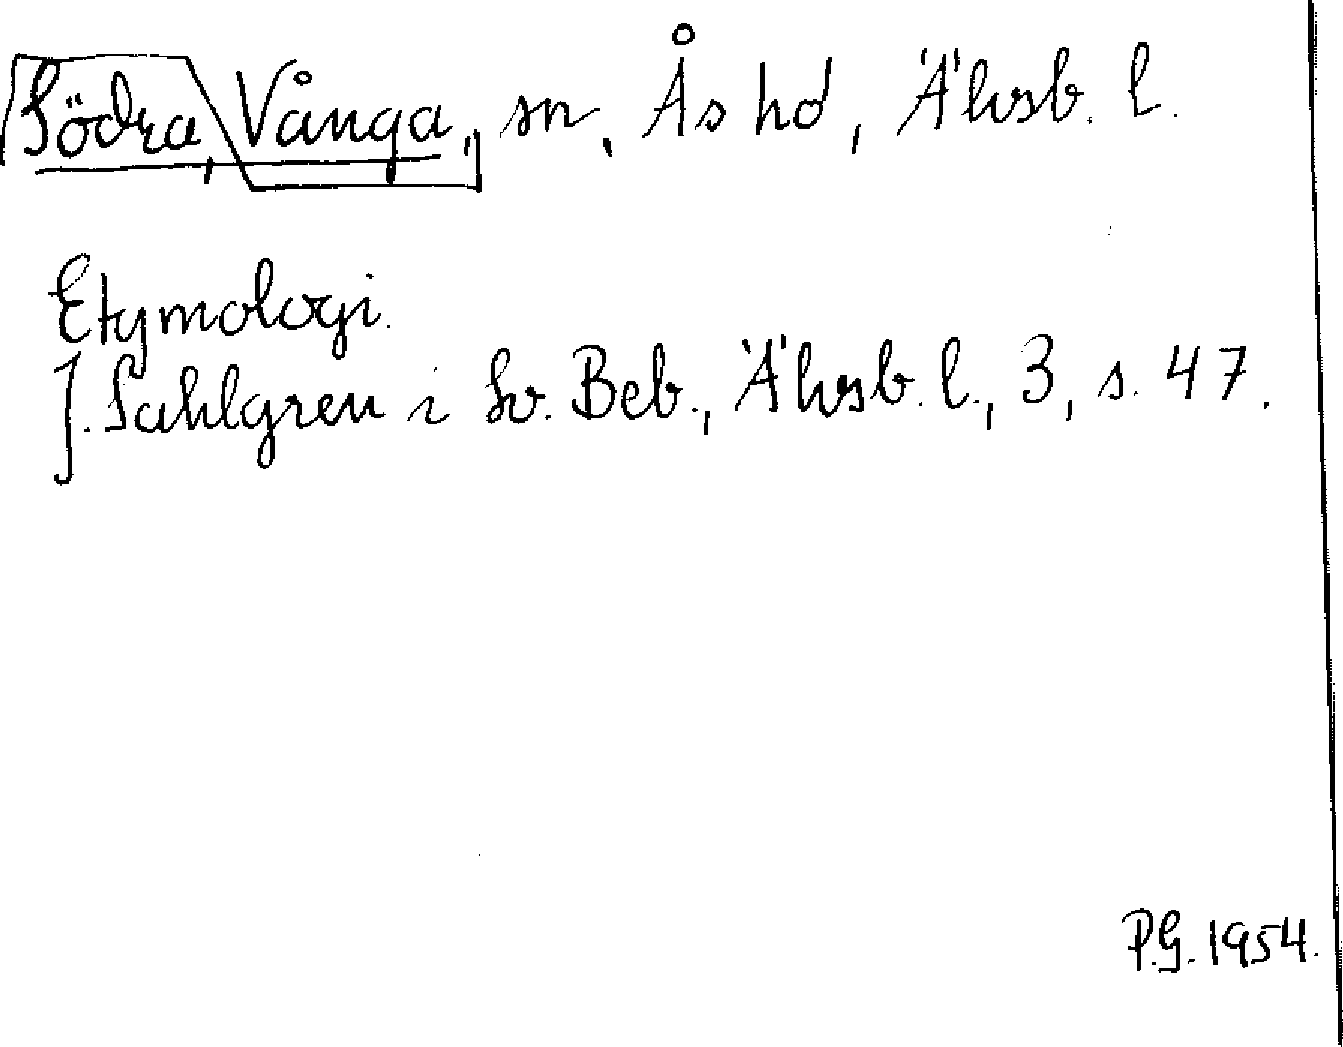 Södra, Vånga, sn, Ås hd, Älvsb. l.
Etymologi.
J. Sahlgren i Sv. Beb., Älvsb. l., 3, s. 47.
P.G. 1954.